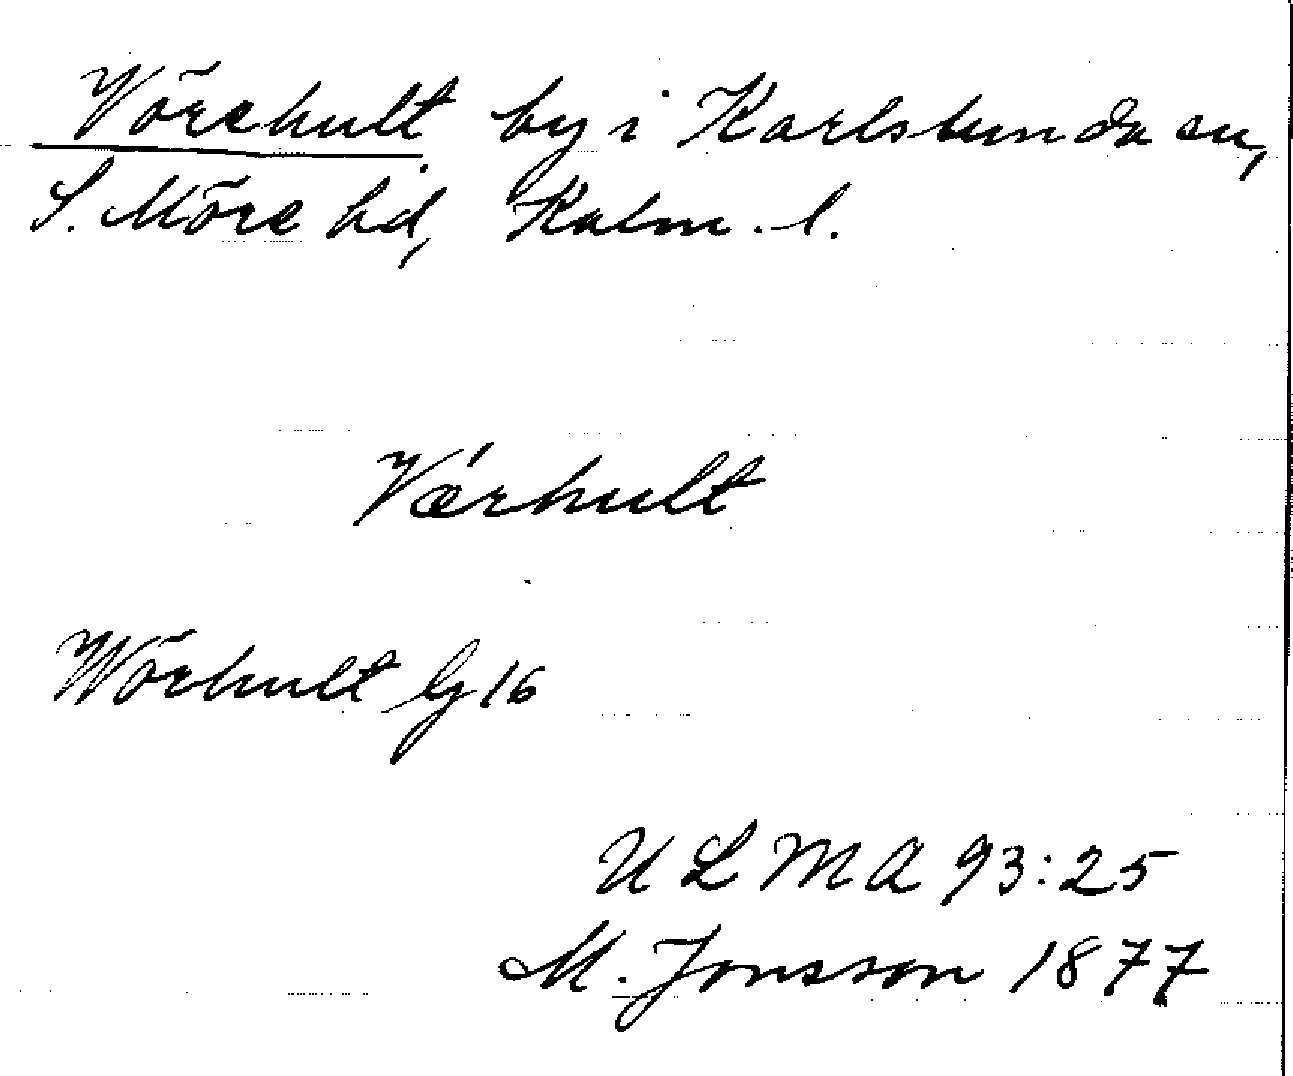 Vörehult by i Karlslunda sn,
S. Möre hd, Kalm. l.
Værhult
Wörhult Gj 16
ULMA 93:25
M. Jonsson 1877